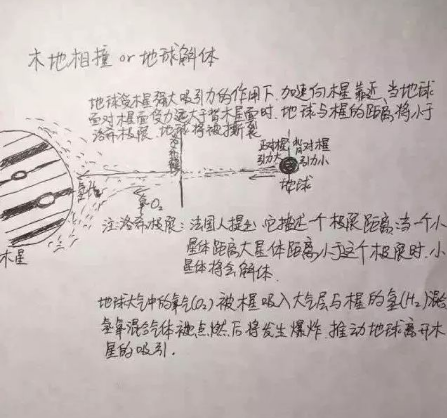 木地相撞 or 地球解体
地球受木星强大吸引力的作用下,加速向木星靠近,当地球
面对木星面受力远大于背木星面时,地球与木星的距离将小于
洛希极限,地球将被撕裂
正对木星 背对木星
引力大 引力小
地球
氢H₂
氧O₂
木星
注:洛希极限:法国人提出,它描述一个极限距离,当一个小
星体距离大星体距离小于这个极限时,小
星体将会解体.
地球大气中的氧气(O₂)被木星吸入大气层与木星的氢(H₂)混
氢氧混合气体被点燃后将发生爆炸,推动地球离开木
星的吸引.